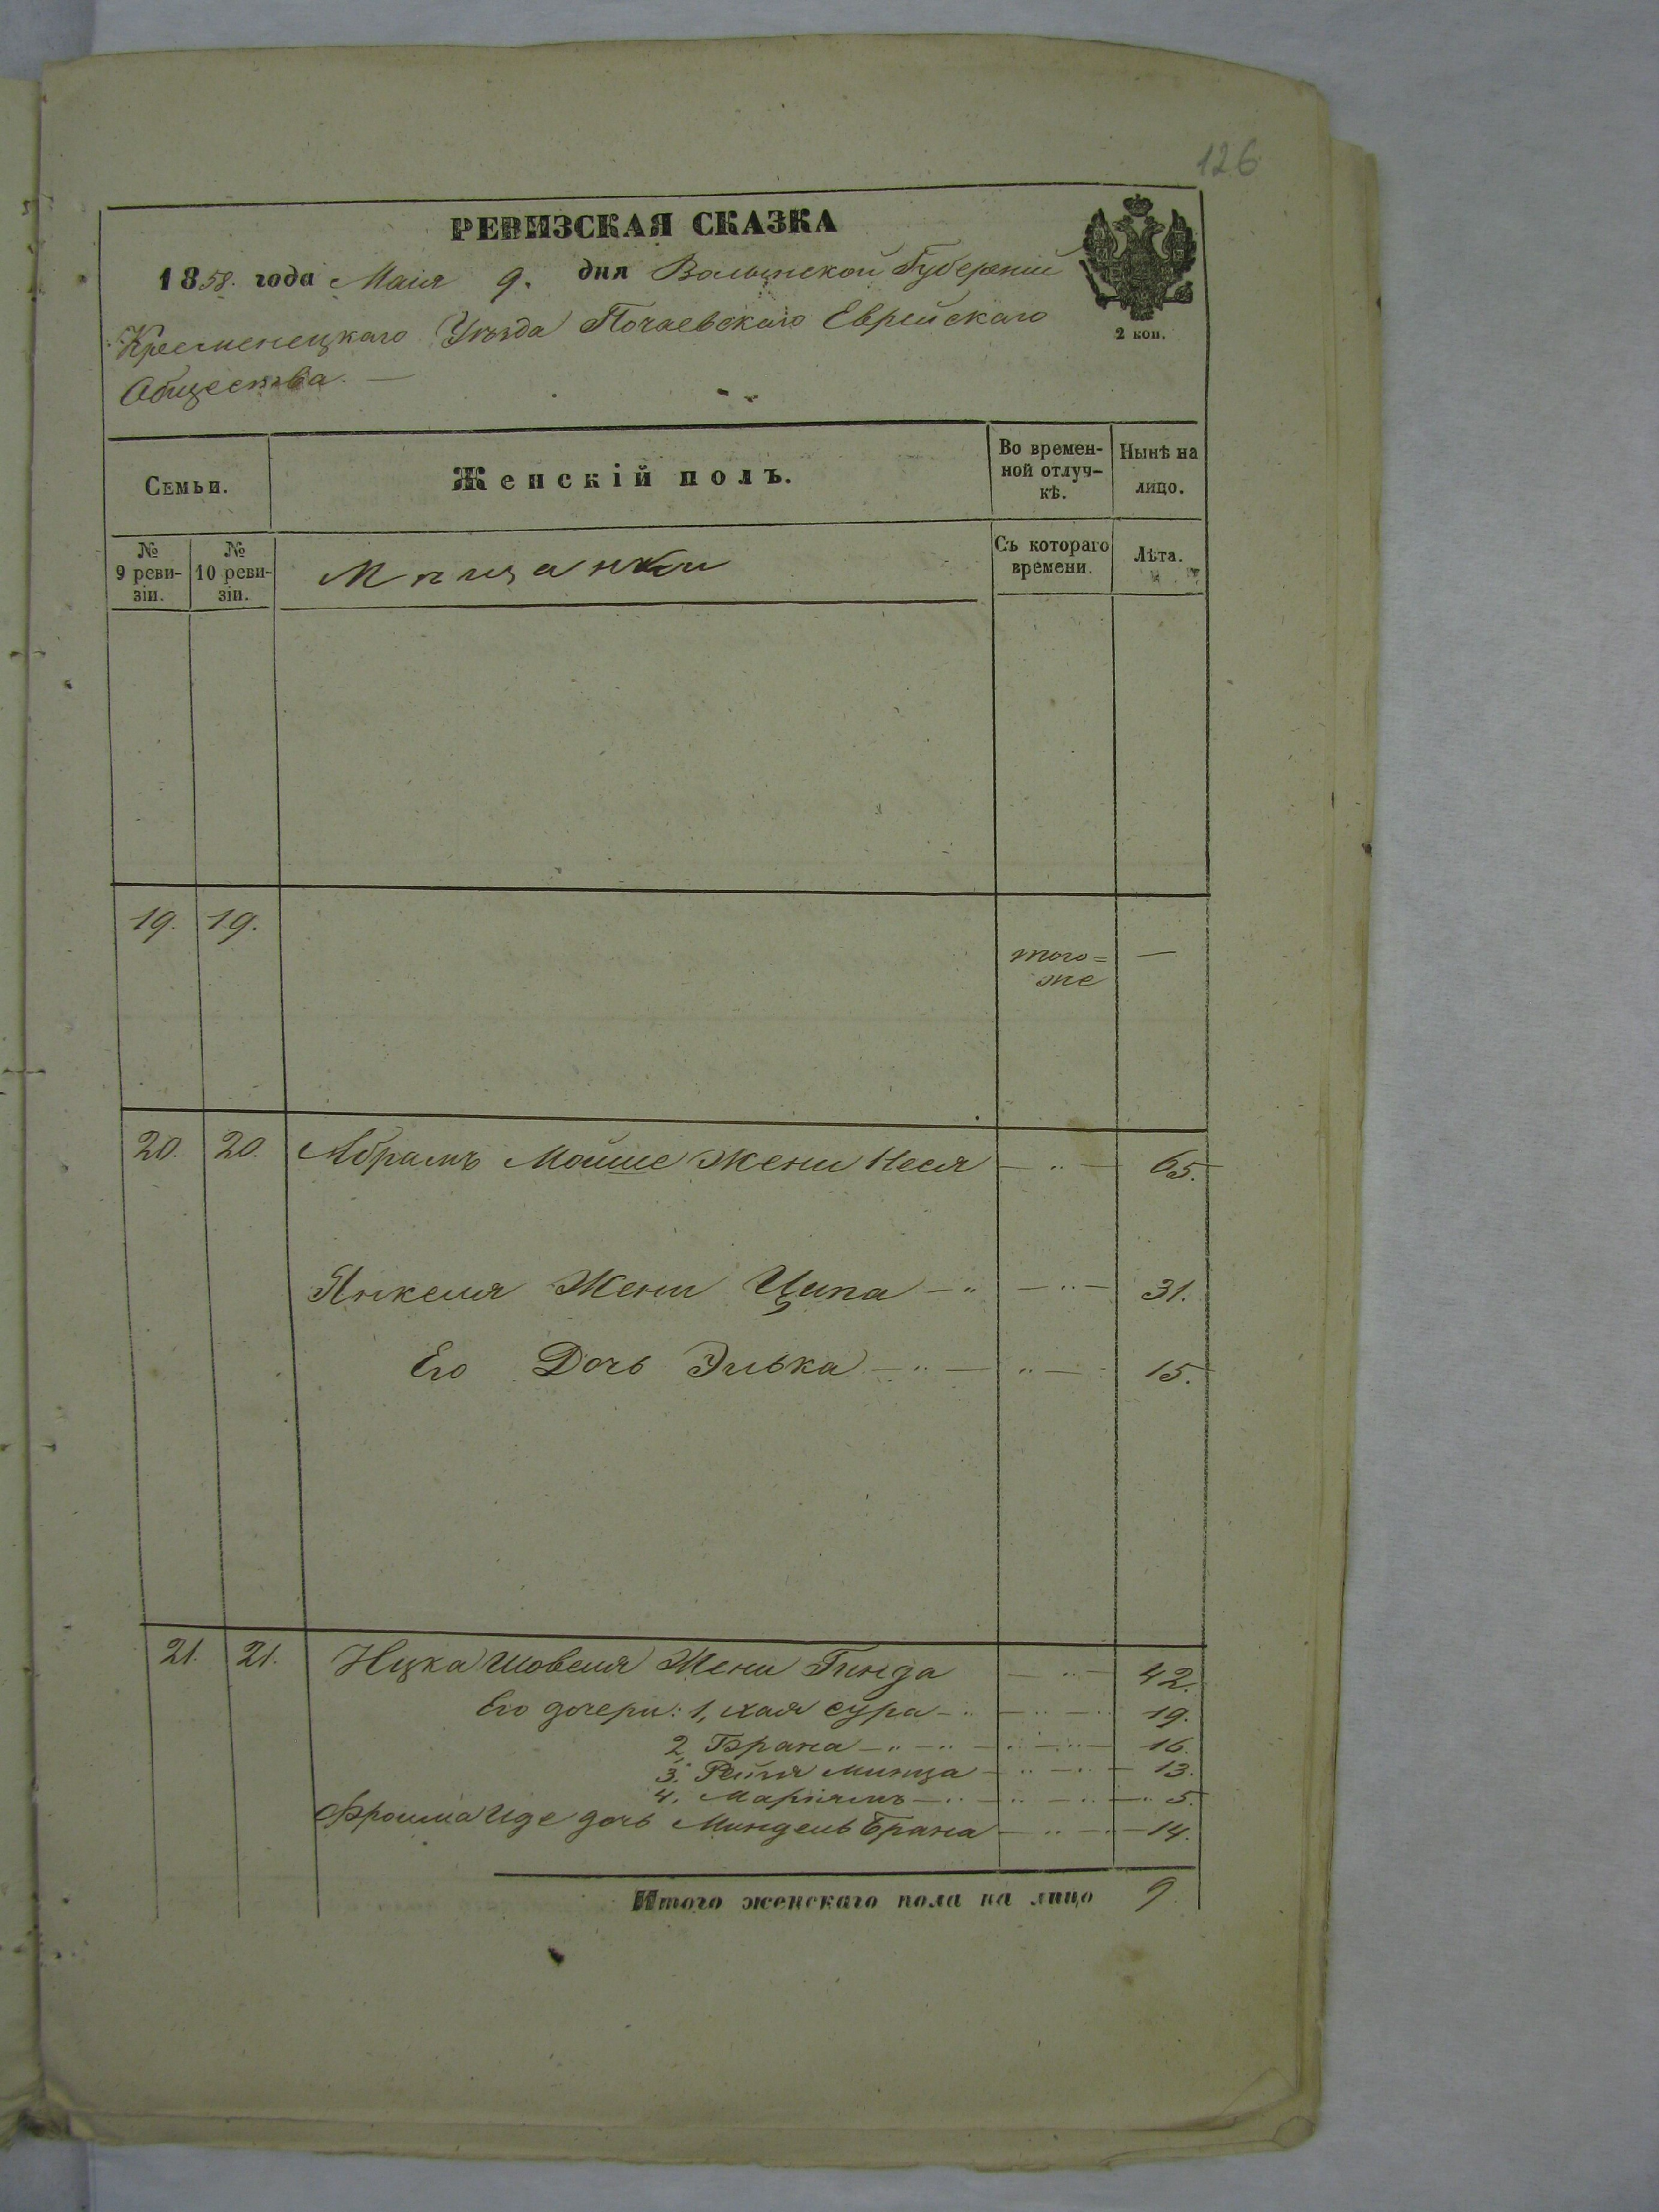 126
РЕВИЗСКАЯ СКАЗКА
1858. года Маія 9. дня Волынской Губерніи
2 коп.
Кременецкаго Уѣзда Почаевскаго Еврейскаго
Общества. —
Семьи. Женскій полъ. Во времен-ной отлуч-кѣ. Нынѣ на лицо.
№ 9 реви-зіи. № 10 реви-зіи. Мѣщанки Съ котораго времени. Лѣта.
19. 19. того= же —
20. 20. Абрамъ Мойше жени Неся — " — 65.
Янкеля Жени Ципа — " — " — 31.
Его Дочь Элька — " — " — 15.
21. 21. Ицка Шовеля Жени Гинда — " — 42.
Его дочери: 1, хая сура — " — " — 19.
2, Брана — " — " — 16.
3. Рейзя Минца — " — " — 13.
4. Маріямъ — " — " — 5.
Фроима Иде дочь Миндель Брана — " — 14.
Итого женскаго пола на лицо 9